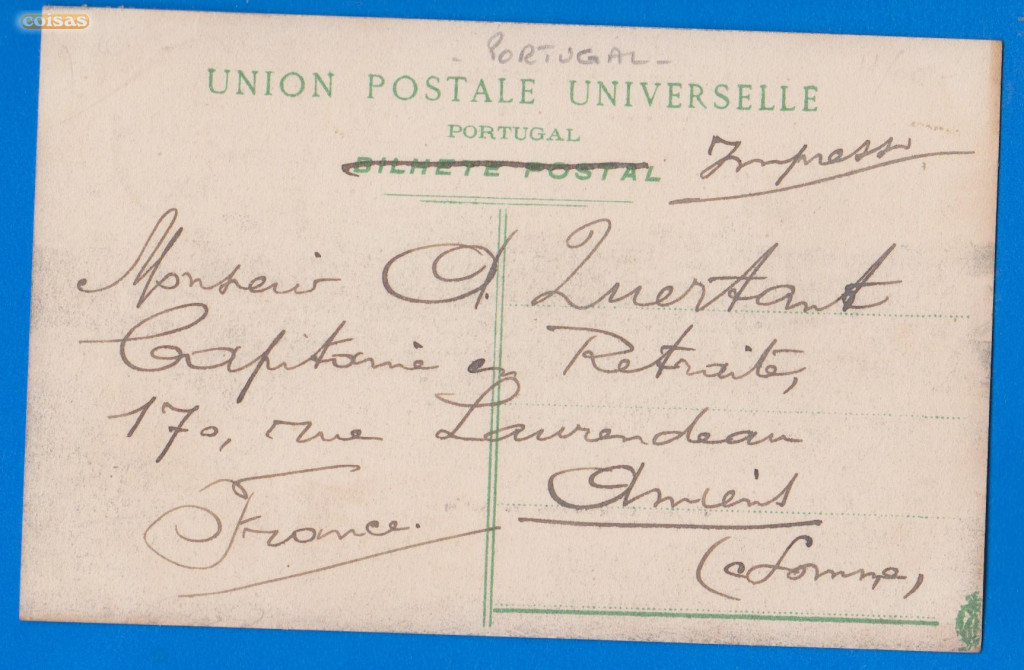 coisas
- PORTUGAL -
UNION POSTALE UNIVERSELLE
PORTUGAL
BILHETE POSTAL
Impresso
Monsieur A. Quertant
Capitaine en Retraite,
170, rue Laurendeau
Amiens
France.
(Somme)